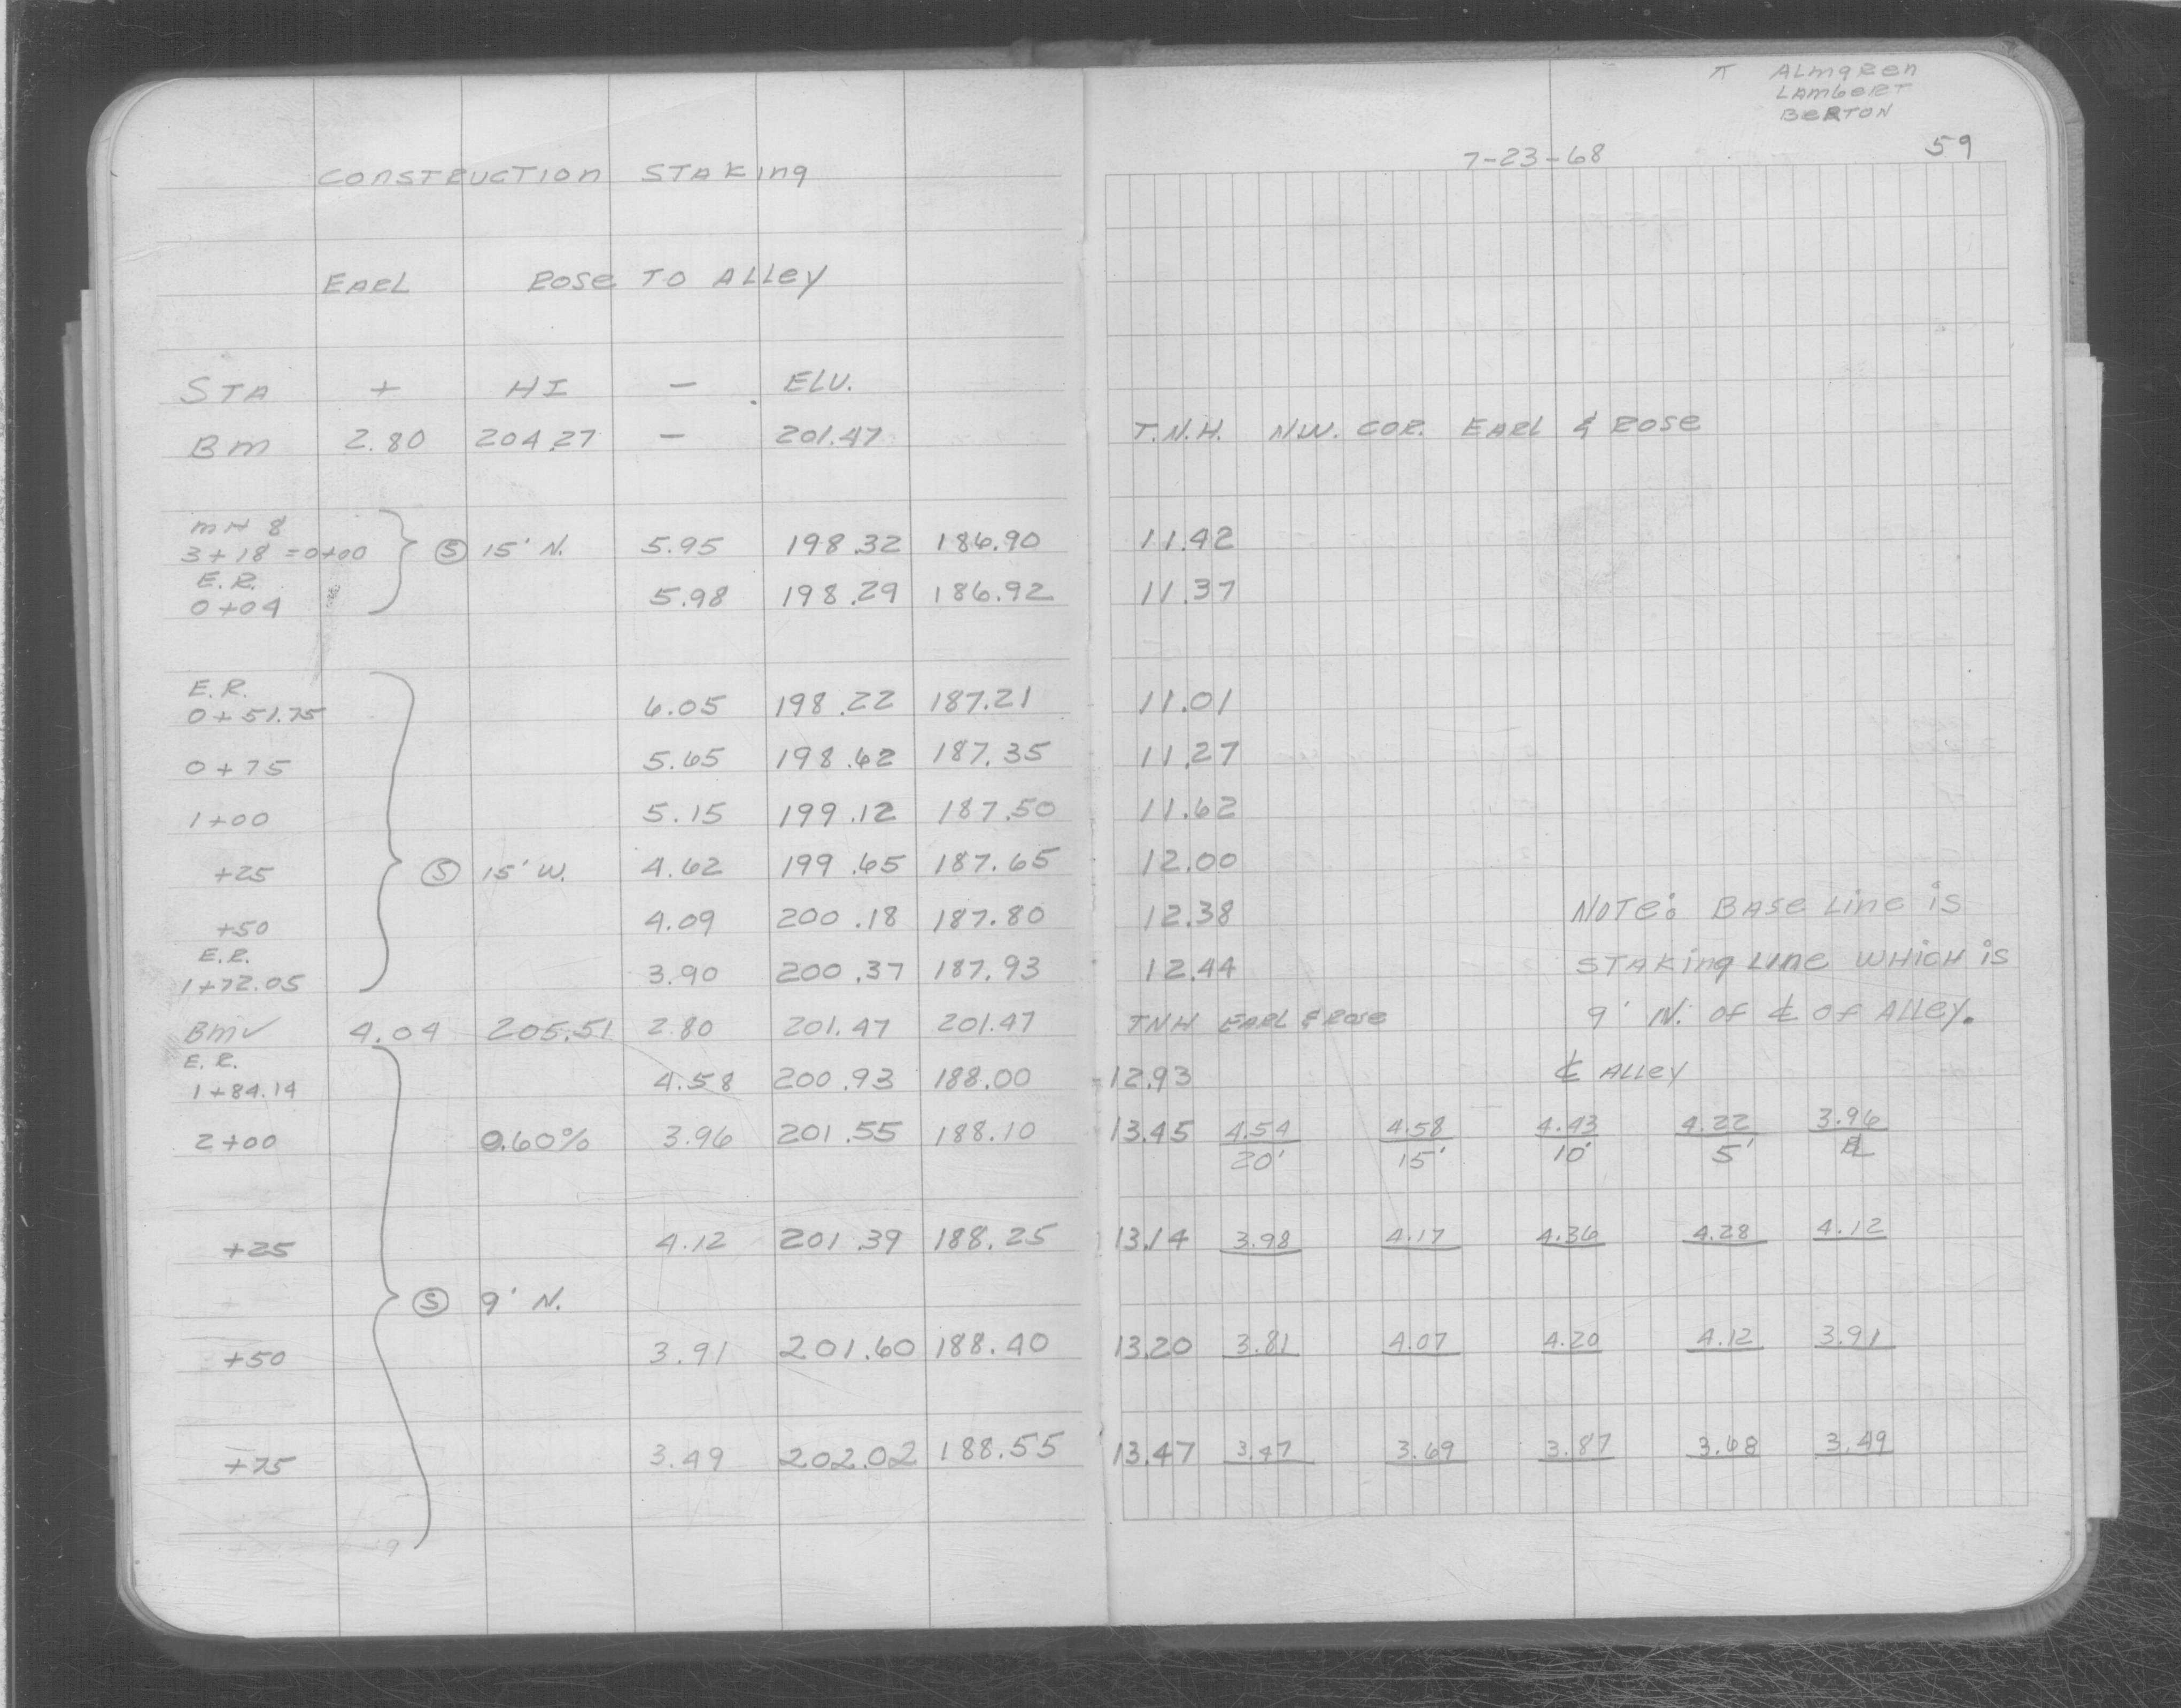 π ALmgRen
LAmbeRT
BeRTON
7-23-68 59
CONSTRUCTION STAKing
EARL ROSe TO ALLey
STA + HI — ELV.
Bm 2.80 204.27 — 201.47 T.N.H. NW. COR. EARL & ROSe
mH 8
3+18 = 0+00 Ⓢ 15' N. 5.95 198.32 186.90 11.42
E.R.
0+04 5.98 198.29 186.92 11.37
E.R.
0+51.75 6.05 198.22 187.21 11.01
0+75 5.65 198.62 187.35 11.27
1+00 5.15 199.12 187.50 11.62
+25 Ⓢ 15' W. 4.62 199.65 187.65 12.00
+50 4.09 200.18 187.80 12.38 NOTe: BASe Line is
E.R.
1+72.05 3.90 200.37 187.93 12.44 STAKing Line WHiCH is
Bm✓ 4.04 205.51 2.80 201.47 201.47 TNH EARL & ROSe 9' N. OF ℄ OF ALLey.
E.R.
1+84.14 4.58 200.93 188.00 12.93 ℄ ALLey
2+00 0.60% 3.96 201.55 188.10 13.45 4.54 4.58 4.43 4.22 3.96
20' 15' 10' 5' BL
+25 4.12 201.39 188.25 13.14 3.98 4.17 4.36 4.28 4.12
Ⓢ 9' N.
+50 3.91 201.60 188.40 13.20 3.81 4.07 4.20 4.12 3.91
+75 3.49 202.02 188.55 13.47 3.47 3.69 3.87 3.68 3.49